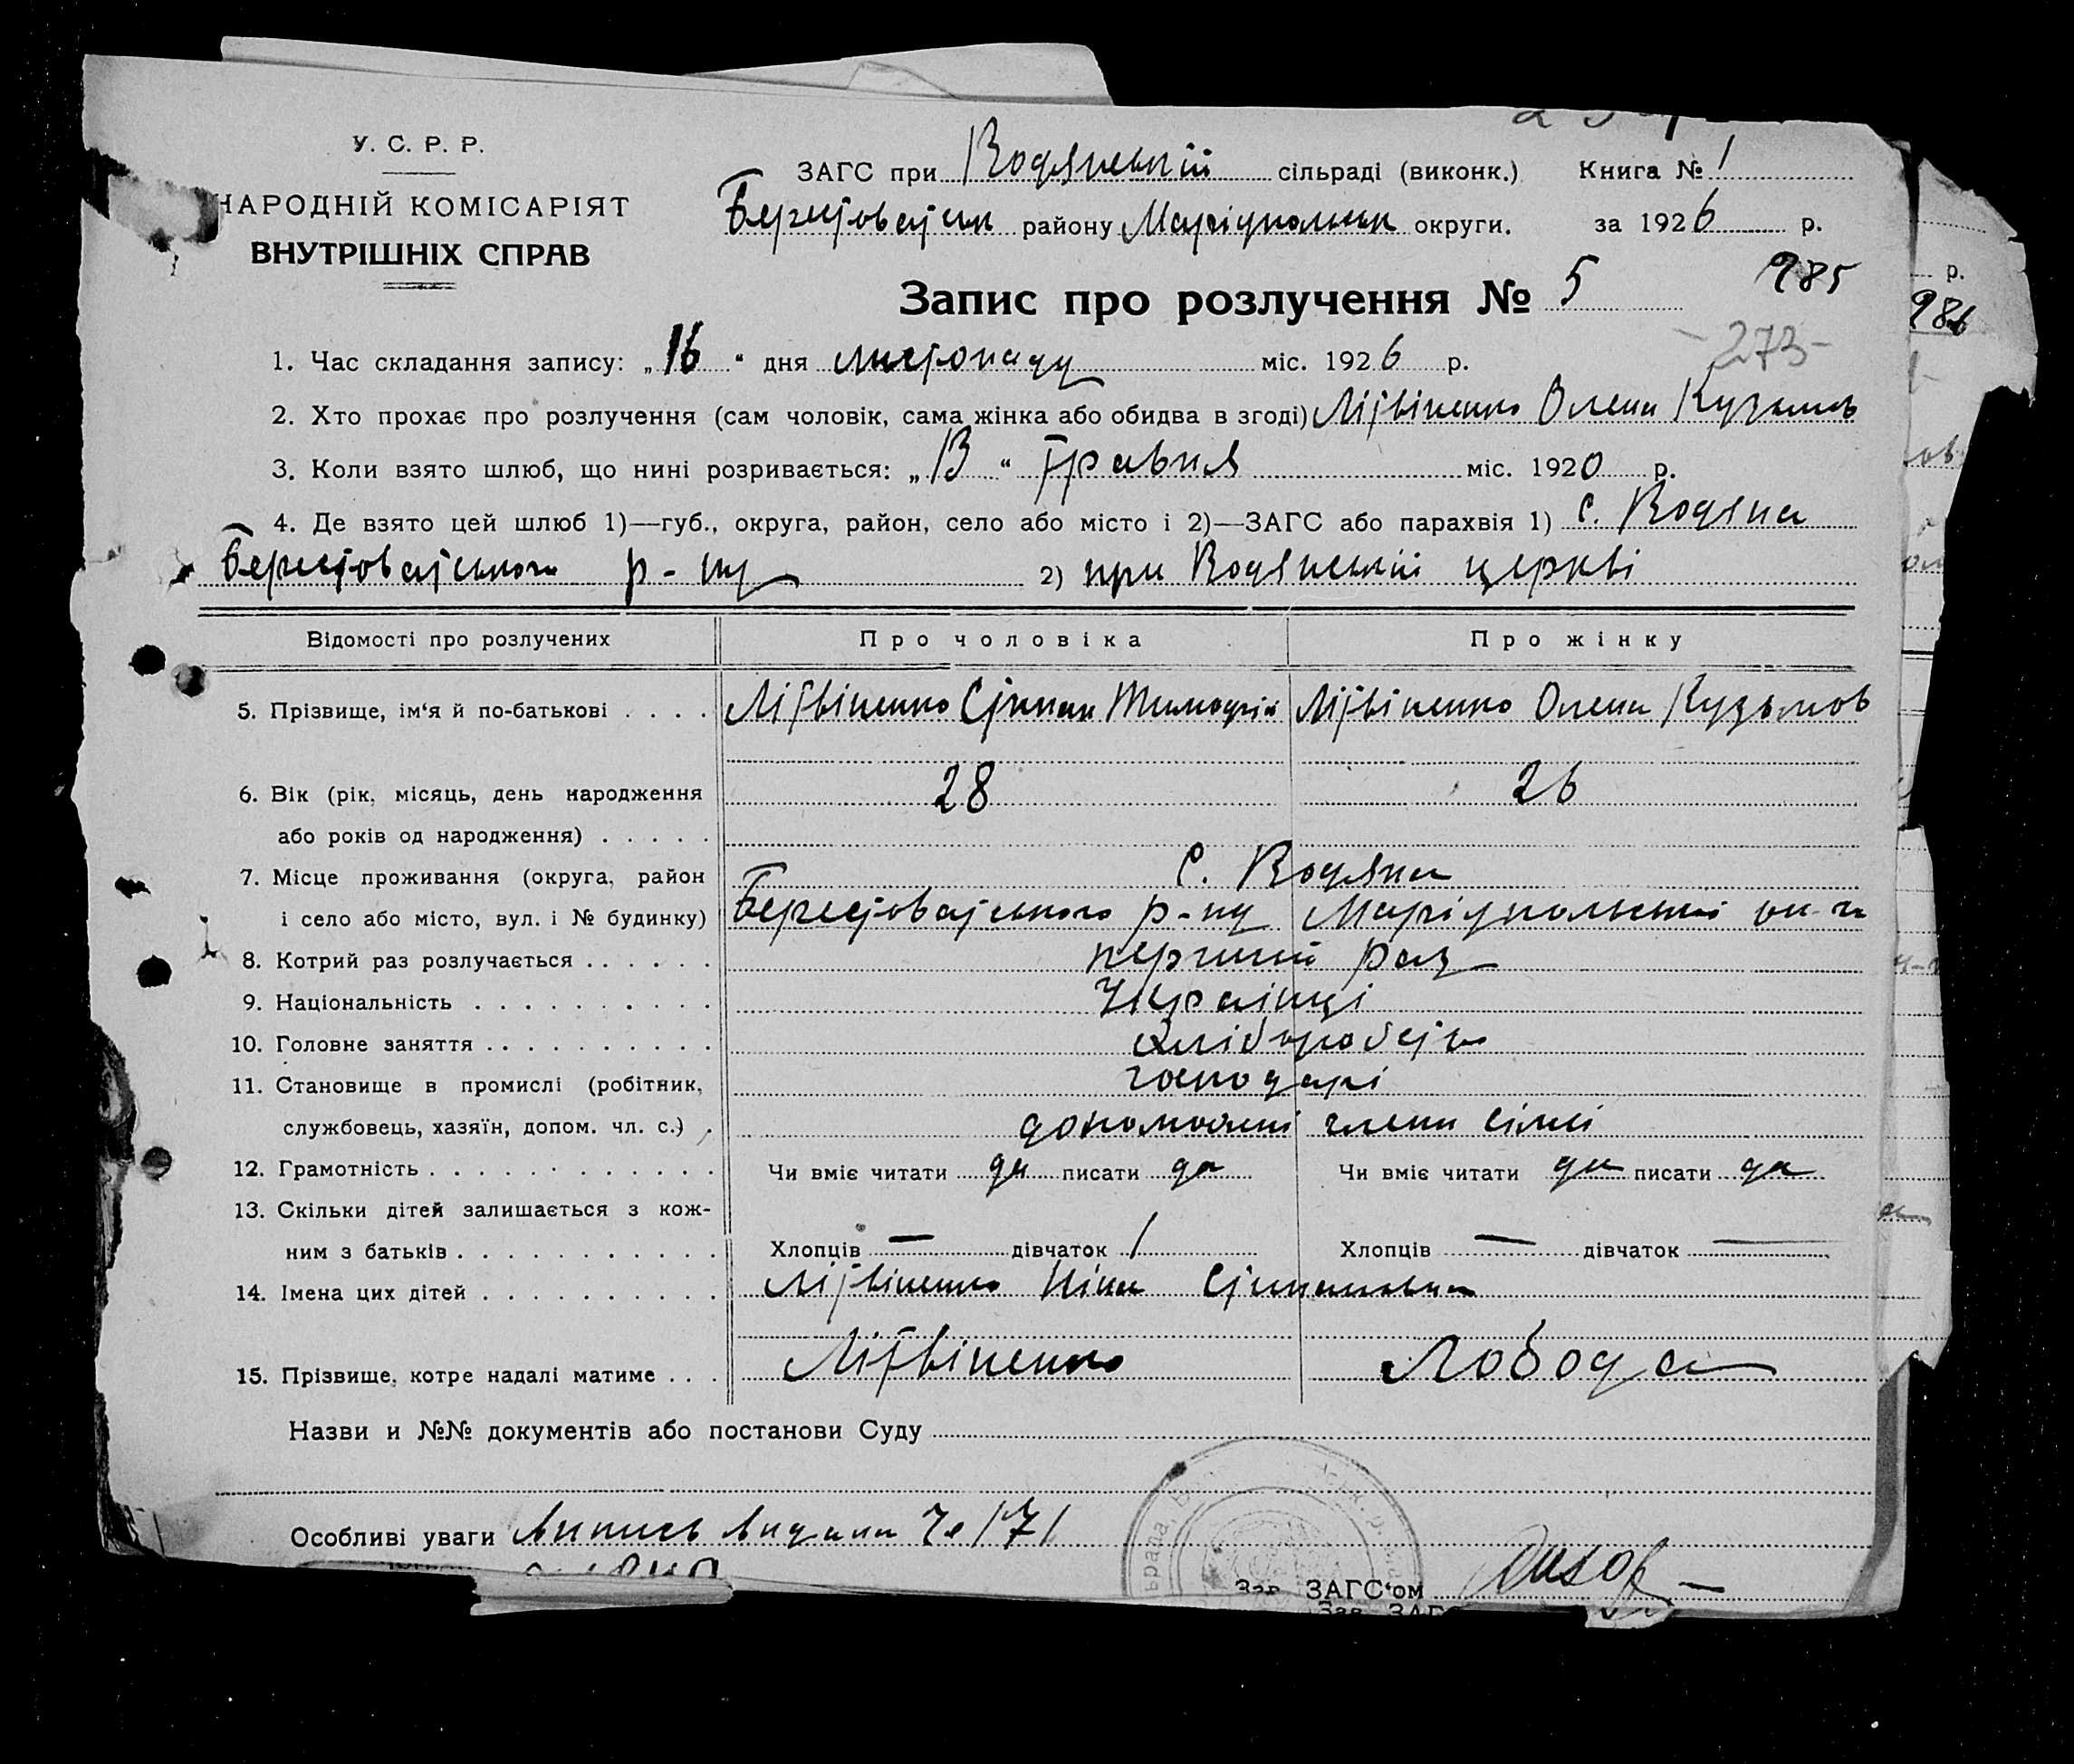 У. С. Р. Р.
НАРОДНІЙ КОМІСАРІЯТ
ВНУТРІШНІХ СПРАВ
ЗАГС при Водянській сільраді (виконк.) Книга № 1
Берестоватськ району Маріупольськ округи. за 1926 р.
Запис про розлучення № 5 985
-273-
1. Час складання запису: „16“ дня листопаду міс. 1926 р.
2. Хто прохає про розлучення (сам чоловік, сама жінка або обидва в згоді) Літвіненко Олена Кузьмов
3. Коли взято шлюб, що нині розривається: „13“ травня міс. 1920 р.
4. Де взято цей шлюб 1)—губ., округа, район, село або місто і 2)—ЗАГС або парахвія 1) с. Водяна
Берестоватського р-ну 2) при Водянській церкві
Відомості про розлучених Про чоловіка Про жінку
5. Прізвище, ім'я й по-батькові . . . . Літвіненко Степан Тимофій Літвіненко Олена Кузьмов
6. Вік (рік, місяць, день народження 28 26
або років од народження) . . . . .
7. Місце проживання (округа, район с. Водяна
і село або місто, вул. і № будинку) Берестоватського р-ну Маріупольської ок-ги
8. Котрий раз розлучається . . . . . . перший раз
9. Національність . . . . . . . . . . Українці
10. Головне заняття . . . . . . . . . . хлібороб
11. Становище в промислі (робітник, господарі
службовець, хазяїн, допом. чл. с.) . допомочні члени сімї
12. Грамотність . . . . . . . . . . . . Чи вміє читати да писати да Чи вміє читати да писати да
13. Скільки дітей залишається з кож-
ним з батьків . . . . . . . . . . . Хлопців — дівчаток 1 Хлопців — дівчаток —
14. Імена цих дітей . . . . . . . . . . Літвіненко Ніна Степановна
15. Прізвище, котре надалі матиме . . . Літвіненко Лобода
Назви и №№ документів або постанови Суду
Особливі уваги Випись видана № 171
Зав. ЗАГС'ом
р.
986